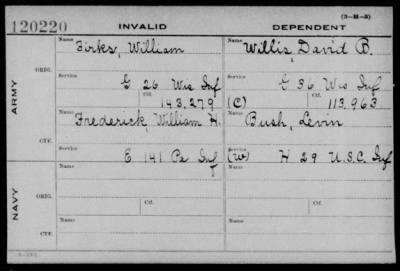 (3-H-5)
120220 INVALID DEPENDENT
Name Firks, William Name Willis David B.
ARMY
ORIG. Service G 26 Wis Inf Service G 36 Wis Inf
Ctf. 143,279 (C) Ctf. 113,963
Name Frederick, William H. Name Bush, Levin
CTF. Service E 141 Pa Inf (W) Service H 29 U.S.C. Inf
NAVY
Name Name
ORIG. Ctf. Ctf.
Name Name
CTF.